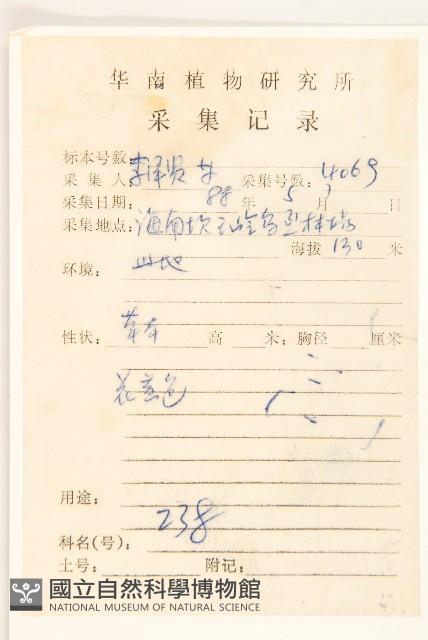 华南植物研究所
采集记录
标本号数:
采集人: 李泽贤 等 采集号数: 4069
采集日期: 88 年 5 月 日
采集地点: 海南坎王岭乌烈林场
海拔 130 米
环境: 山地
性状: 草本 高 米; 胸径 厘米
花 色
用途:
238
科名(号):
土号: 附记:
國立自然科學博物館
NATIONAL MUSEUM OF NATURAL SCIENCE